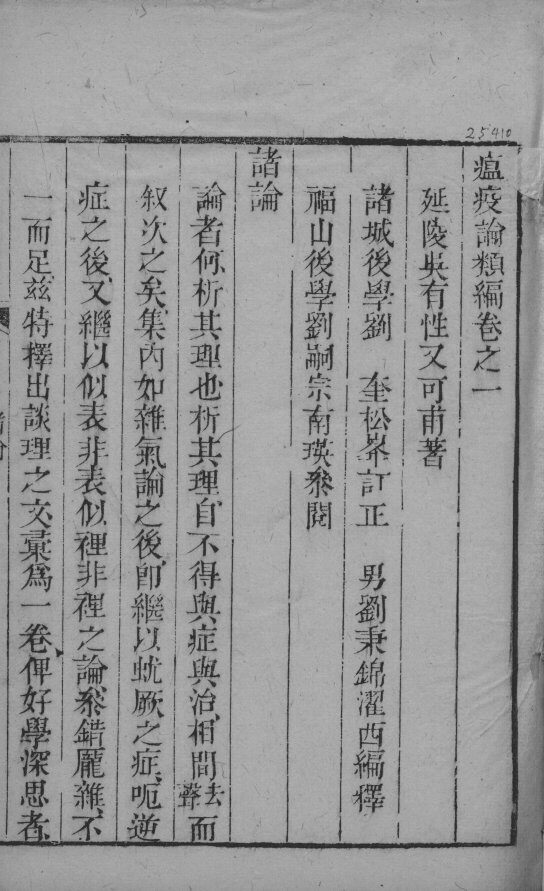 25410
瘟疫論類編卷之一
延陵吳有性又可甫著
諸城後學劉　奎松峯訂正　男劉秉錦濯西編釋
福山後學劉嗣宗南瑛叅閱
諸論
論者何析其理也析其理自不得與症與治相間去聲而
叙次之矣集內如雜氣論之後卽繼以蚘厥之症呃逆
症之後又繼以似表非表似裡非裡之論叅錯龐雜不
一而足茲特擇出談理之文彙爲一卷俾好學深思者